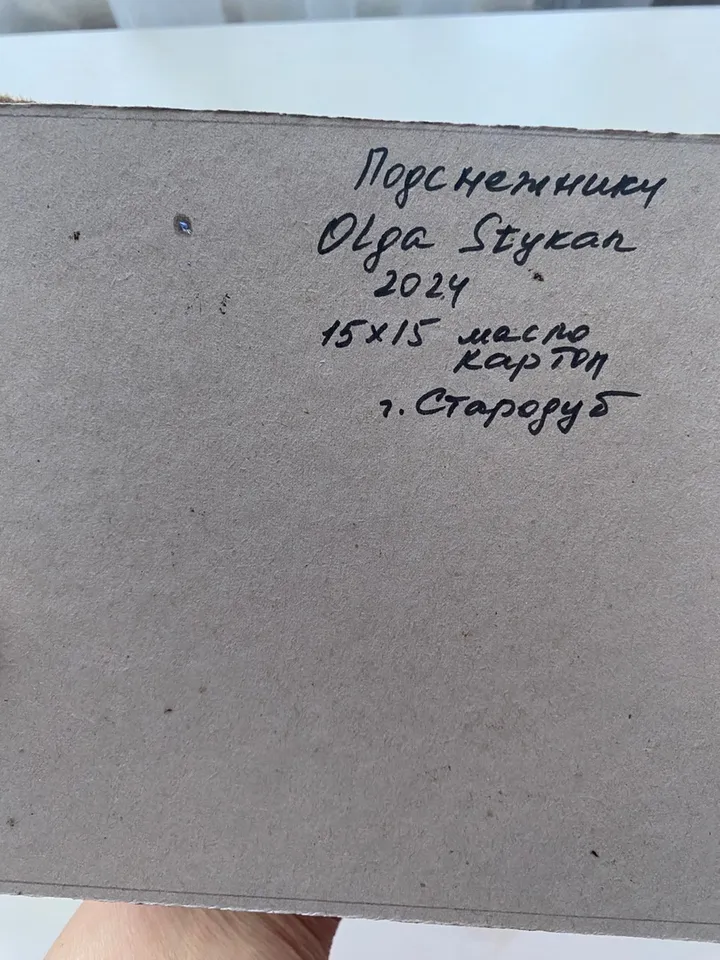 Подснежники
Olga Stykan
2024
15x15 масло
картон
г. Стародуб